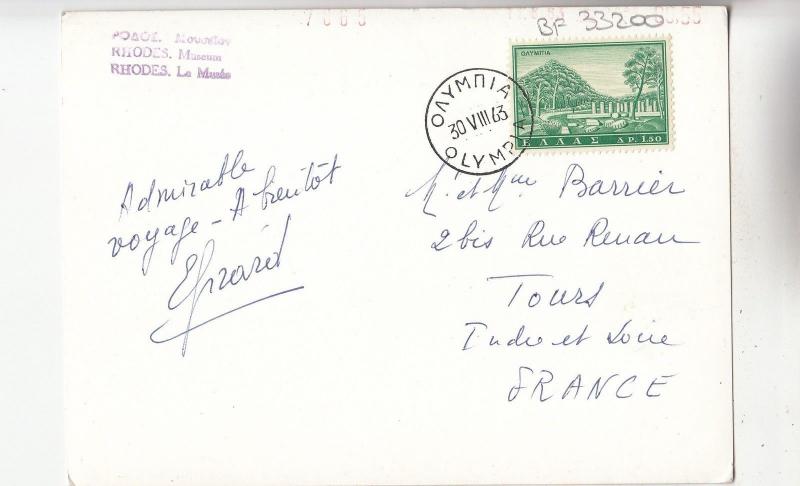 7665
BF 33200
ΡΟΔΟΣ. Μουσεῖον
RHODES. Museum
RHODES. Le Musée
ΟΛΥΜΠΙΑ
ΕΛΛΑΣ ΔΡ. 1.50
ΟΛΥΜΠΙΑ
30 VIII 63
OLYMPIA
Admirable
voyage - A bientôt
M. et Mme Barrier
2 bis Rue Renan
Tours
Indre et Loire
FRANCE